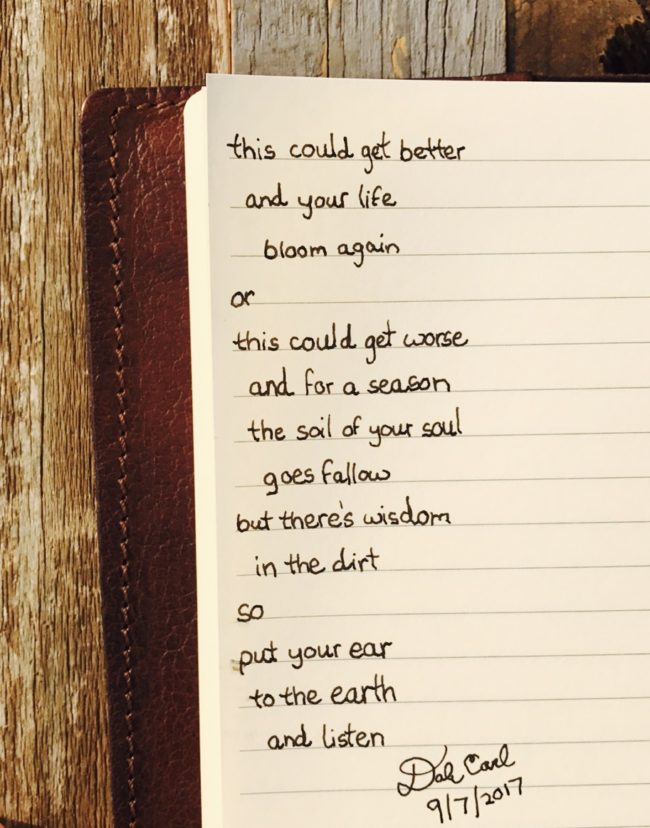 this could get better
and your life
bloom again
or
this could get worse
and for a season
the soil of your soul
goes fallow
but there's wisdom
in the dirt
so
put your ear
to the earth
and listen
9/7/2017